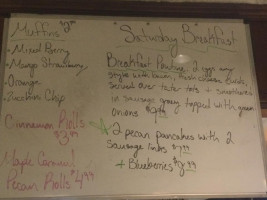 Muffins
- Mixed Berry
- Mango Strawberry
- Orange
- Zucchini Chip
Cinnamon Rolls
$3.99
Maple Caramel
Pecan Rolls $4.99
"Saturday Breakfast"
Breakfast Poutine 2 eggs any
style with bacon, fresh cheese curds,
served over tater tots + smothered
in sausage gravy topped with green
onions
2 pecan pancakes with 2
sausage links
+ Blueberries